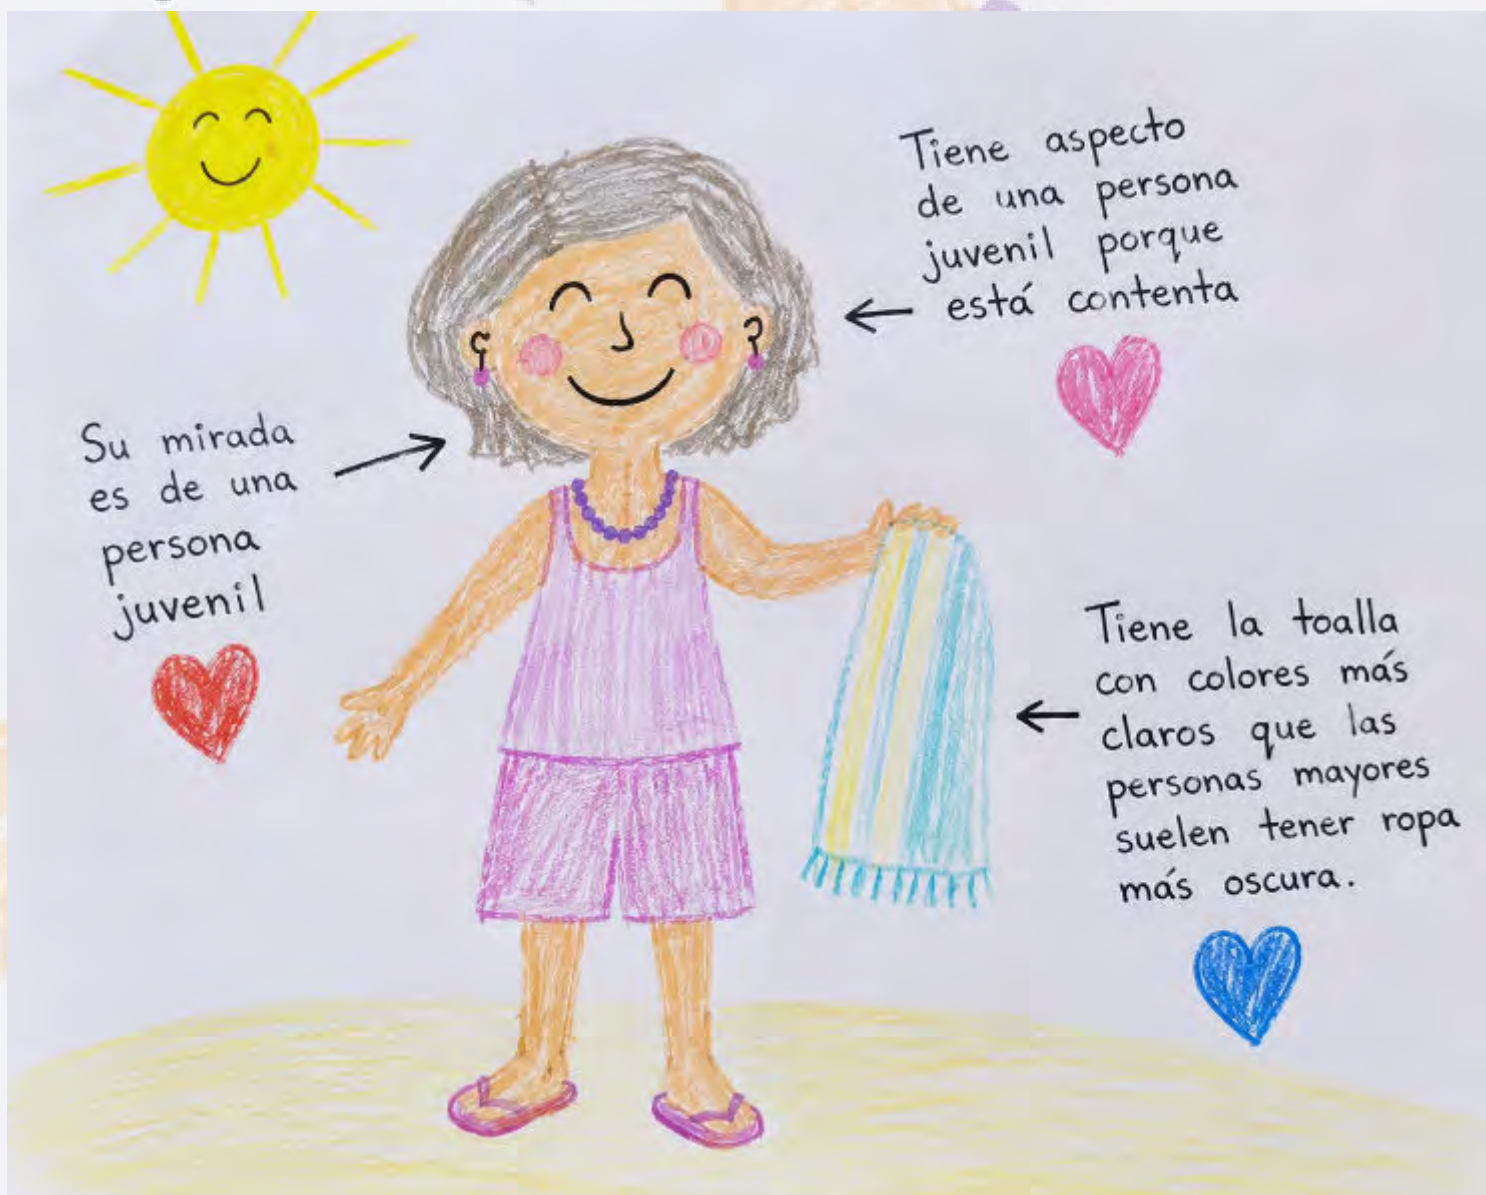 Tiene aspecto
de una persona
juvenil porque
está contenta
Su mirada
es de una
persona
juvenil
Tiene la toalla
con colores más
claros que las
personas mayores
suelen tener ropa
más oscura.